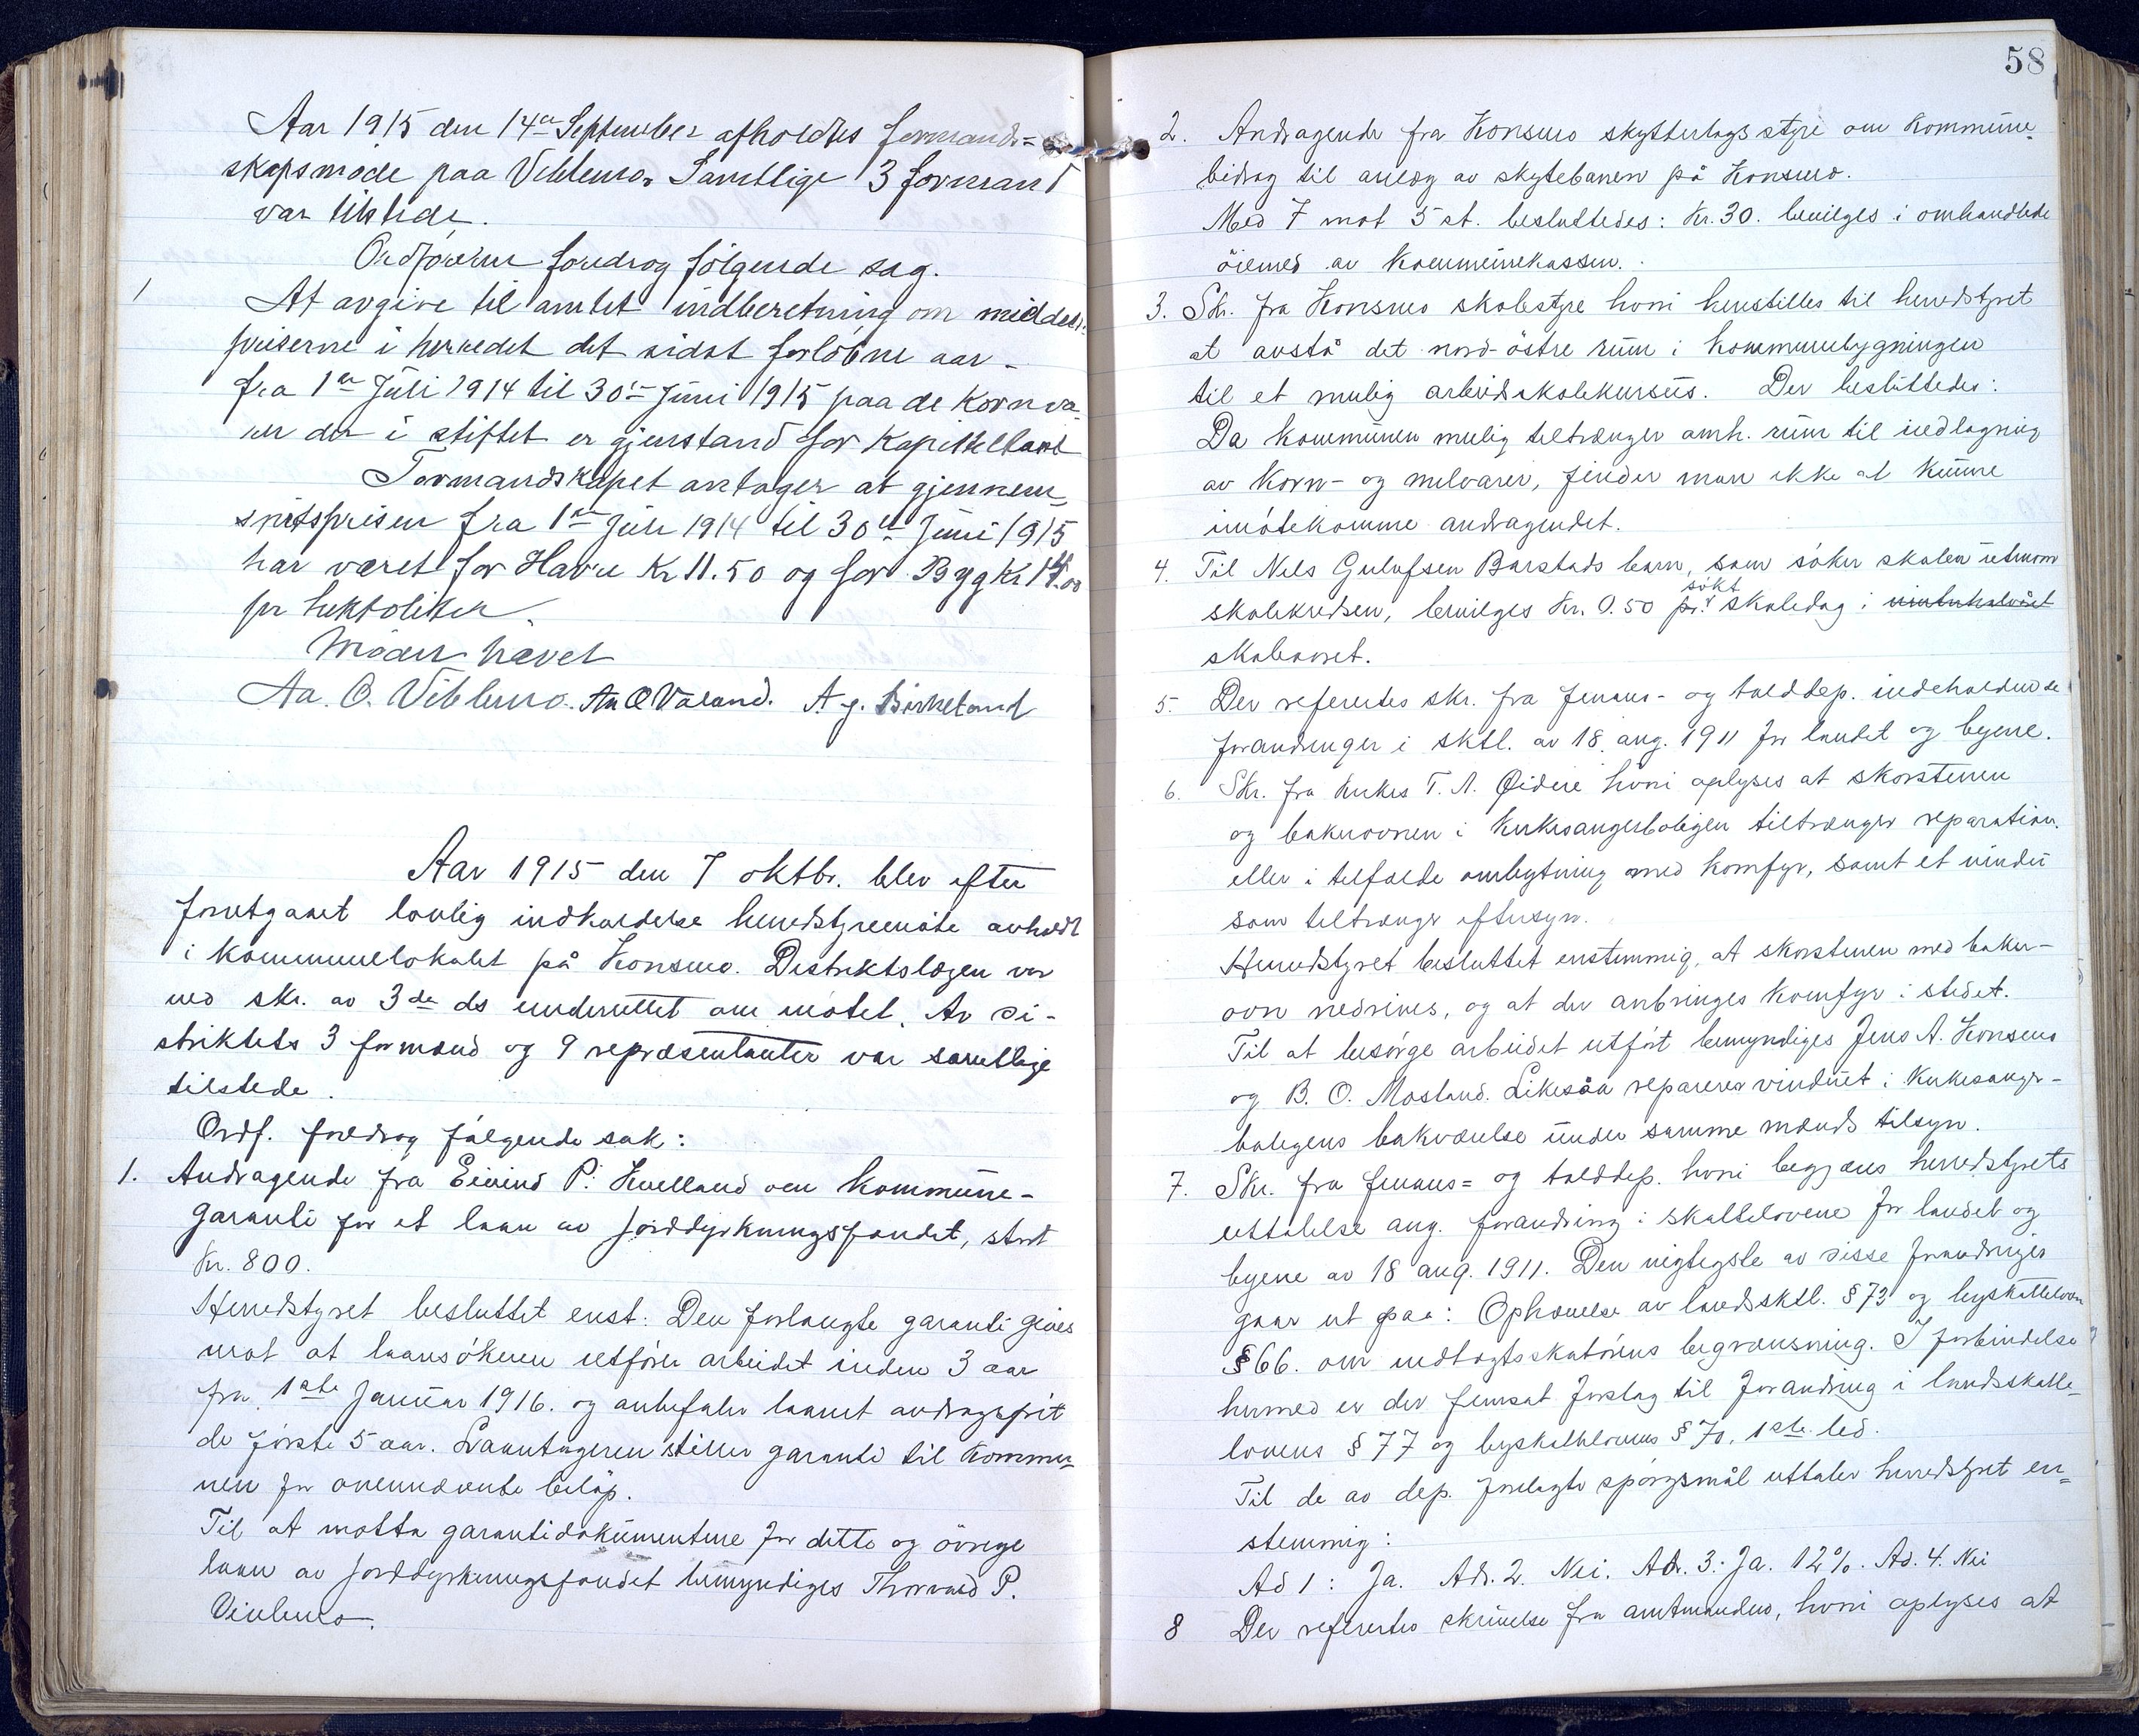 Aar 1915 den 14de September afholdtes formands=
skapsmøde paa Viblemo. Samtlige 3 formænd
var tilstede.
Ordføreren foredrog følgende sag.
1 At avgive til amtet indberetning om middel-
priserne i herredet det sidst forløbne aar -
fra 1ste Juli 1914 til 30te Juni 1915 paa de Kornva
rer der i stiftet er gjenstand for Kapitelstakst
Formandskapet antager at gjennem
snitsprisen fra 1ste Juli 1914 til 30te Juni 1915
har været for Havre Kr 11.50 og for Bygg Kr 14.00
pr hektoliter.
Mødet hævet
Aa. O. Viblemo. An O Valand. A. g. Birkeland
Aar 1915 den 7 oktbr. blev efter
forutgaaet lovlig indkaldelse herredstyremøte avholdt
i kommunelokalet på Konsmo. Distriktslægen var
ved skr. av 3de ds underrettet om møtet. Av di-
striktets 3 formænd og 9 repræsentanter var samtlige
tilstede.
Ordf. foredrog følgende sak:
1. Andragende fra Eivind P. Hvelland om kommune-
garanti for et laan av jorddyrkningsfondet, stort
Kr. 800.
Herredstyret besluttet enst: Den forlangte garanti gives
mot at laansøkeren utfører arbeidet inden 3 aar
fra 1ste Januar 1916. og anbefaler laanet avdragsfrit
de første 5 aar. Laantageren stiller garanti til kommu-
nen for ovennævnte beløp.
Til at motta garantidokumentene for dette og øvrige
laan av jorddyrkningsfondet bemyndiges Thorvald P.
Viblemo.
58
2. Andragende fra Konsmo skytterlags styre om kommune-
bidrag til anlæg av skytebanen på Konsmo.
Med 7 mot 5 st. besluttedes: Kr. 30. bevilges i omhandlede
øiemed av kommunekassen.
3. Skr. fra Konsmo skolestyre hvori henstilles til herredstyret
at avstå det nord-østre rum i kommunebygningen
til et mulig arbeidsskolekursus. Der besluttedes:
Da kommunen mulig tiltrænger omh. rum til indlagning
av korn- og melvarer, finder man ikke at kunne
imøtekomme andragendet.
4. Til Nels Gulufsen Barstads barn, som søker skolen utenom
skolekredsen, bevilges Kr. 0.50 pr. søkt skoledag i vinterhalvåret
skoleaaret.
5. Der refereertes skr. fra finans- og tolddep. indeholdende
forandringer i sktl. av 18. aug. 1911 for landet og byene.
6. Skr. fra kirkes T. A. Øidne hvori oplyses at skorstenen
og bakerovnen i kirkesangerboligen tiltrænger reparation.
eller i tilfælde ombytning med komfyr, samt et vindu
som tiltrænger eftersyn.
Herredstyret besluttet enstemmig, at skorstenen med baker-
ovn nedrives, og at der anbringes komfyr i stedet.
Til at besørge arbeidet utført bemyndiges Jens A. Konsmo
og B. O. Mosland. Likesaa repareres vinduet i kirkesanger-
boligens bakværelse under samme mænds tilsyn.
7. Skr. fra finans= og tolddep. hvori begjæres herredstyrets
uttalelse ang. forandring i skattelovene for landet og
byene av 18 aug. 1911. Den vigtigste av disse forandringer
gaar ut paa: Ophævelse av landssktl. § 73 og byskatteloven
§ 66. om indtægtsskatørens begrænsning. I forbindelse
hermed er der fremsat forslag til forandring i landsskatte-
lovens § 77 og byskattelovens § 70, 1ste led.
Til de av dep. forelagte spørgsmål uttaler herredstyret en=
stemmig:
Ad 1: Ja. Ad. 2. Nei. Ad. 3: Ja. 12%. Ad. 4. Nei
8 Der refereertes skrivelse fra amtmanden, hvori oplyses at